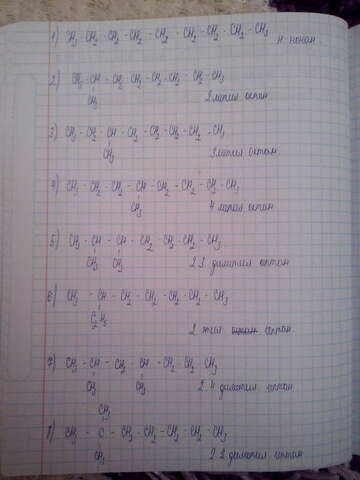 1) CH3 - CH2 - CH2 - CH2 - CH2 - CH2 - CH2 - CH2 - CH3
н нонан
2) CH3 - CH - CH2 - CH2 - CH2 - CH2 - CH2 - CH3
CH3
2 метил октан
3) CH3 - CH2 - CH - CH2 - CH2 - CH2 - CH2 - CH3
CH3
3 метил октан
4) CH3 - CH2 - CH2 - CH - CH2 - CH2 - CH2 - CH3
CH3
4 метил октан
5) CH3 - CH - CH - CH2 - CH2 - CH2 - CH3
CH3 CH3
2 3 диметил гептан
6) CH3 - CH - CH2 - CH2 - CH2 - CH2 - CH3
C2H5
2 этил гептан.
7) CH3 - CH - CH2 - CH - CH2 - CH2 - CH3
CH3 CH3
2 4 диметил гептан
CH3
8) CH3 - C - CH2 - CH2 - CH2 - CH2 - CH3
CH3
2 2 диметил гептан.